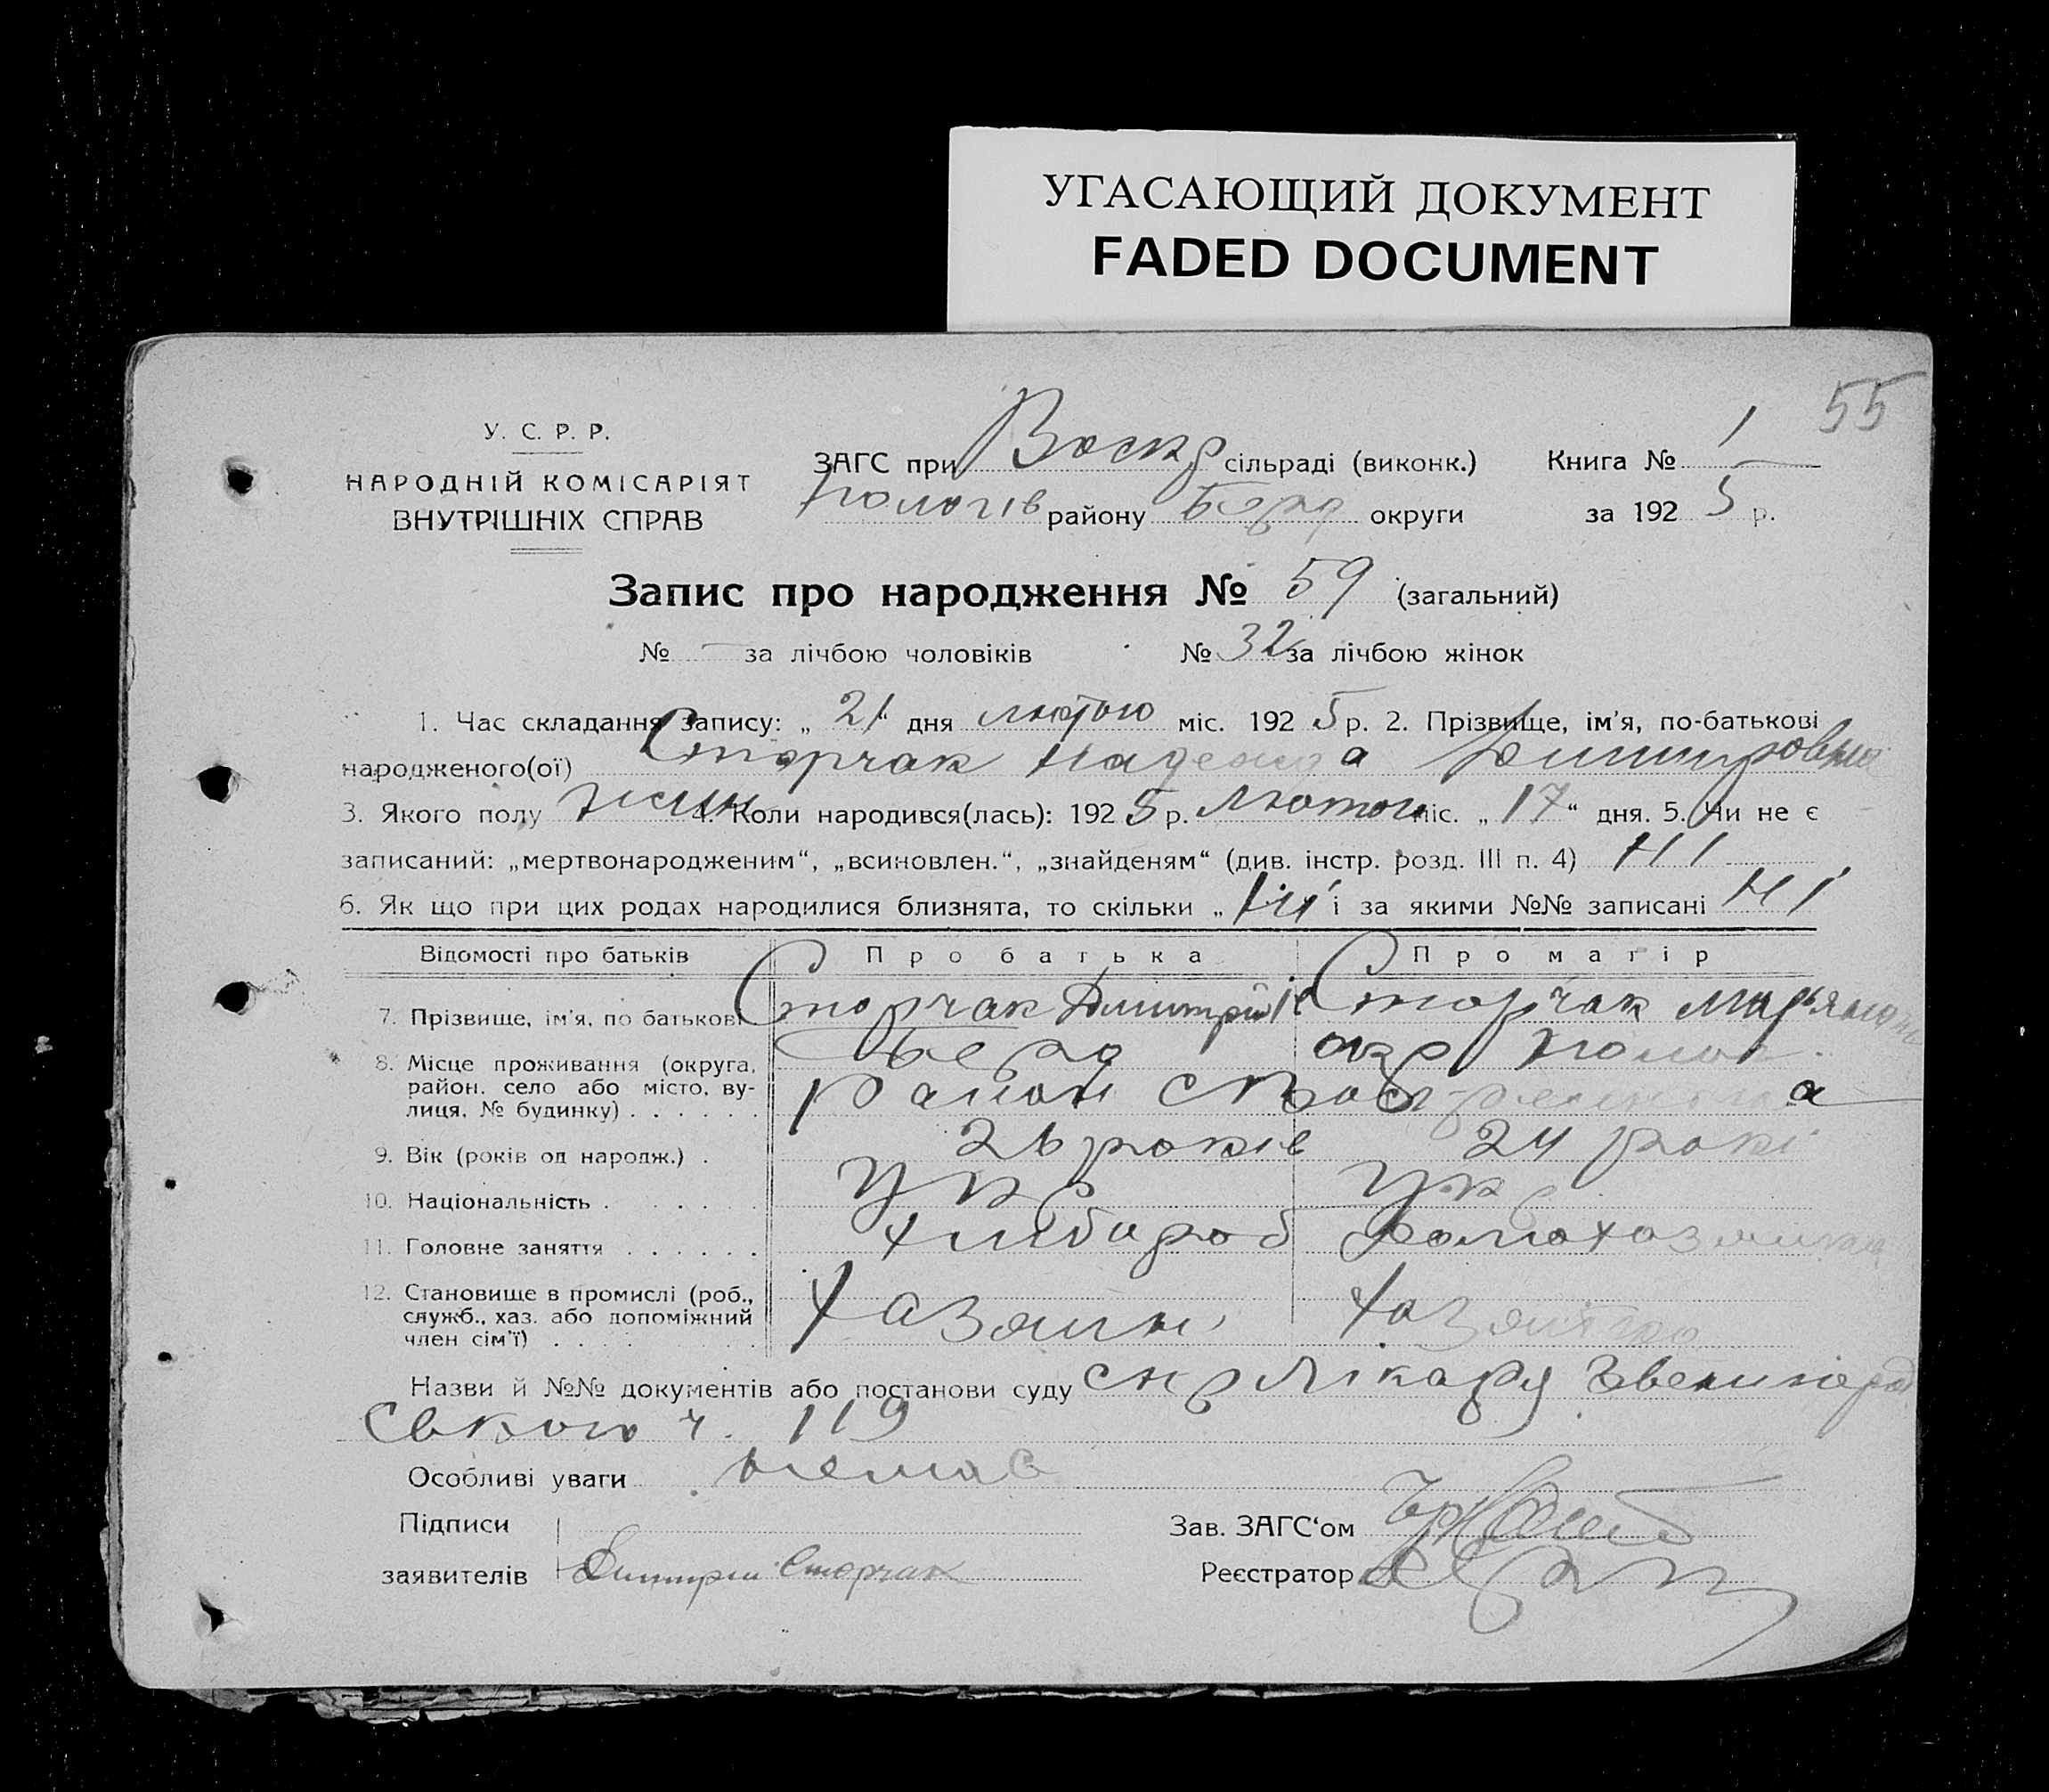 УГАСАЮЩИЙ ДОКУМЕНТ
FADED DOCUMENT
55
У. С. Р. Р.
НАРОДНІЙ КОМІСАРІЯТ
ВНУТРІШНІХ СПРАВ
ЗАГС при Воскр сільраді (виконк.)
Пологів району Берд округи
Книга № 1
за 1925 р.
Запис про народження № 59 (загальний)
№ — за лічбою чоловіків № 32 за лічбою жінок
1. Час складання запису: „21“ дня лютого міс. 1925 р. 2. Прізвище, ім'я, по-батькові
народженого(ої) Сторчак Надежда Димитровна
3. Якого полу жін 4. Коли народився(лась): 1925 р. Лютого міс. „17“ дня. 5. Чи не є
записаний: „мертвонародженим“, „всиновлен.“, „знайденям“ (див. інстр. розд. III п. 4) Ні
6. Як що при цих родах народилися близнята, то скільки „Ні і за якими №№ записані Ні
Відомості про батьків Про батька Про матір
7. Прізвище, ім'я, по батькові Сторчак Димитрій Сторчак
8. Місце проживання (округа, Берд окр Полог.
район, село або місто, ву- район
лиця, № будинку)
9. Вік (років од народж.) 26 років 24 рокі
10. Національність Укр Укр
11. Головне заняття хлібороб домохазяйка
12. Становище в промислі (роб., хазяин хазяйка
служб., хаз. або допоміжний
член сім'ї)
Назви й №№ документів або постанови суду Лікаря Звенигород
ського ч. 119
Особливі уваги немає
Підписи Зав. ЗАГС'ом
заявителів Димитрий Сторчак Реєстратор